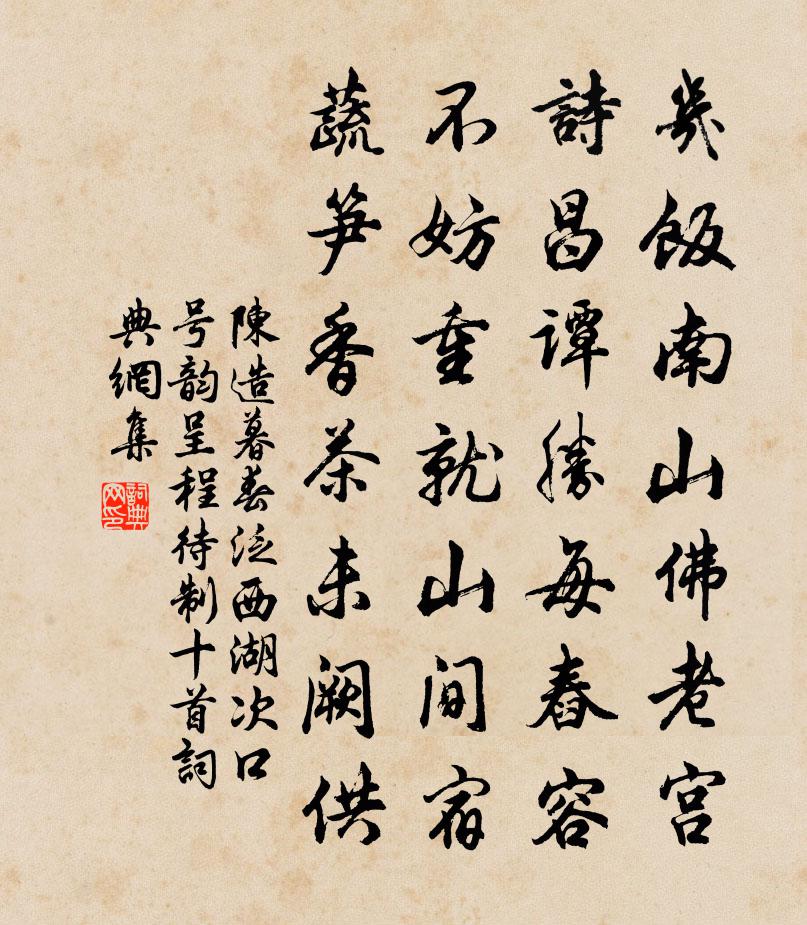 幾飯南山佛老宮
詩昌譚勝每舂容
不妨重就山間宿
蔬笋香茶未闕供
陳造暮春泛西湖次口
号韵呈程待制十首詞
典網集
詞典
网印